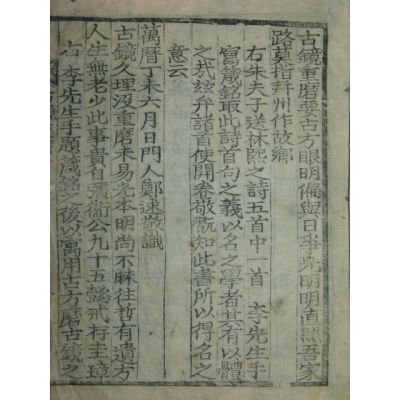 古鏡重磨要古方眼明偏與日爭光明明直照吾家
路莫指幷州作故鄉
右朱夫子送林熙之詩五首中一首　李先生手
寫箴銘取此詩首句之義以名之學者其有以體
之哉玆弁諸首使開卷敬翫知此書所以得名之
意云
萬曆丁未六月日門人鄭逑敬識
古鏡久埋沒重磨未易光本明尚不昧往哲有遺方
人生無老少此事貴自彊衛公九十五懿戒存圭璋
右　李先生手題箴銘之後以寓用古方磨古鏡之